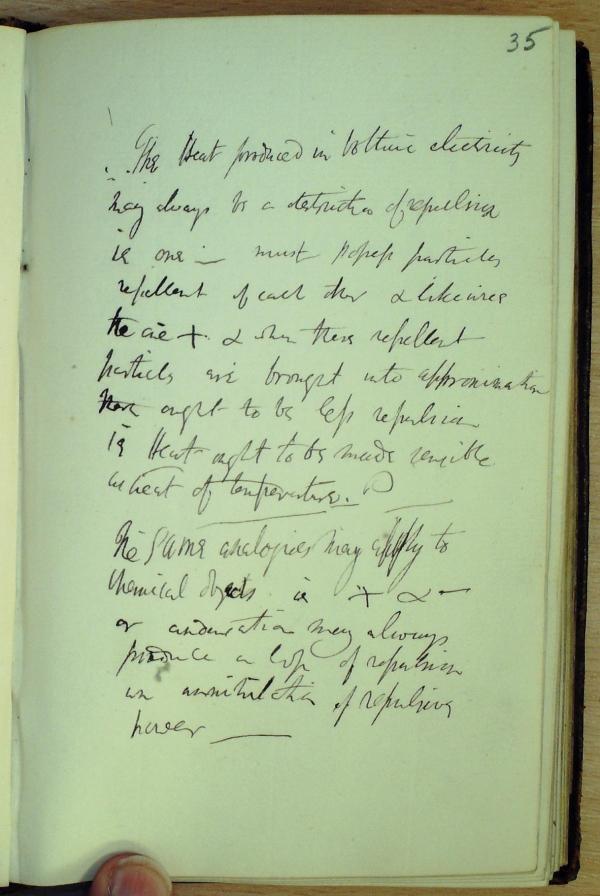 35
The Heat produced in voltaic electricity
may always be a destruction of repulsion
ie one — must possess particles
repellent of each other & likewise
the one + & when these repellent
particles are brought into approximation
there ought to be less repulsion
ie Heat ought to be made sensible
as heat of temperature.
The same analogies may apply to
chemical objects ie + & -
or condensation may always
produce a loss of repulsion
an annihilation of repulsive
power —